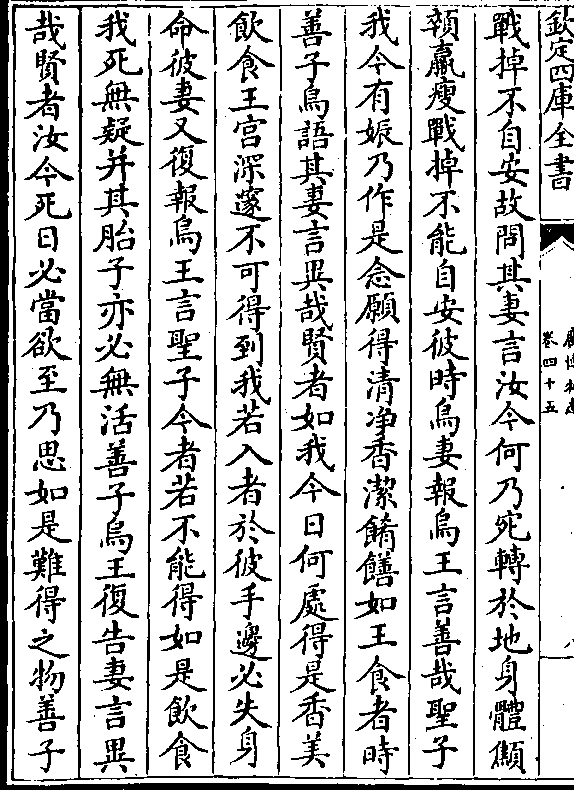 欽定四庫全書
卷四十五
戰掉不自安故問其妻言汝今何乃宛轉於地身體顦
顇羸瘦戰掉不能自安彼時烏妻報烏王言善哉聖子
我今有娠乃作是念願得清浄香潔餚饍如王食者時
善子烏語其妻言異哉賢者如我今日何處得是香美
飲食王宫深䆳不可得到我若入者於彼手邊必失身
命彼妻又復報烏王言聖子今者若不能得如是飲食
我死無疑并其胎子亦必無活善子烏王復告妻言異
哉賢者汝今死日必當欲至乃思如是難得之物善子